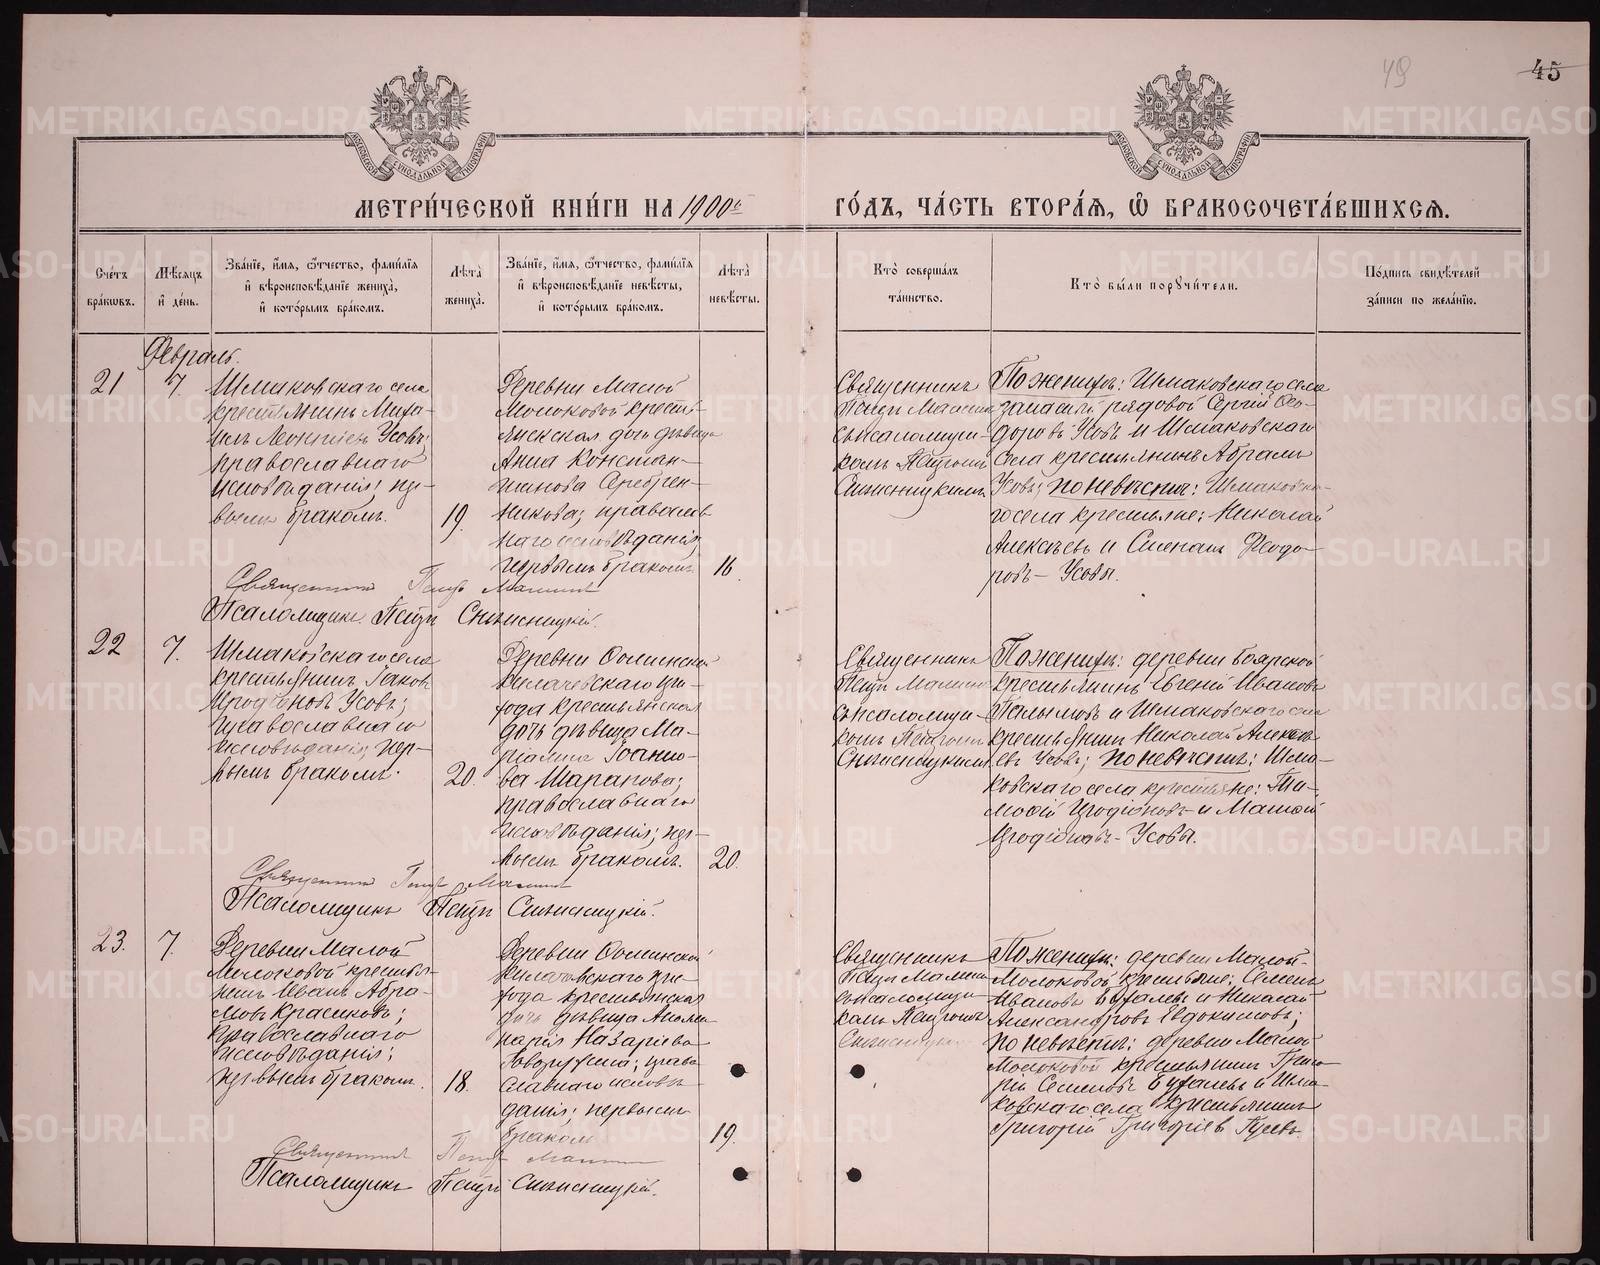 49
45
МЕТРИ́ЧЕСКОЙ КНИ́ГИ НА 1900й
ГО́ДЪ, ЧА́СТЬ ВТОРА́Я, Ѽ БРАКОСОЧЕТА́ВШИХСЯ.
Сче́тъ бра́ковъ.
Мѣ́сяцъ и҆ де́нь.
Зва́нїе, и҆́мя, ѻ҆́тчество, фами́лїя и҆ вѣроисповѣ́данїе жениха̀, и҆ кото́рымъ бра́комъ.
Лѣта̀ жениха̀.
Зва́нїе, и҆́мя, ѻ҆́тчество, фами́лїя и҆ вѣроисповѣ́данїе невѣ́сты, и҆ кото́рымъ бра́комъ.
Лѣта̀ невѣ́сты.
Кто̀ соверша́лъ та́инство.
Кто̀ бы́ли порꙋчи́тели.
По́дпись свидѣ́телей за́писи по жела́нїю.
Февраль.
21
7.
Шмаковскаго села
крестьянинъ Миха-
илъ Леонтіевъ Усовъ;
православнаго
исповѣданія; пер-
вымъ бракомъ.
19.
Деревни Малой
Молоковой кресть-
янская дочь дѣвица
Анна Констан-
тинова Серебрен-
никова; православ
наго исповѣданія;
первымъ бракомъ.
16
Священникъ
Петръ Малин
съ псаломщи-
комъ Петромъ
Сынсницкимъ
По женихѣ: Шмаковскаго села
запасной рядовой Сергій Ѳео-
доровъ Усовъ и Шмаковскаго
села крестьянинъ Абрамъ
Усовъ; по невѣстѣ: Шмаковска-
го села крестьяне: Николай
Алексѣевъ и Степанъ Ѳеодо-
ровъ — Усовы.
Священникъ Петръ
Псаломщикъ Петръ
22
7.
Шмаковскаго села
крестьянинъ Іаковъ
Иродіоновъ Усовъ;
православнаго
исповѣданія; пер-
вымъ бракомъ.
20.
Деревни
Килачевскаго при-
хода крестьянская
дочь дѣвица Ма-
ріамна Іоанно-
ва Шарапова;
православнаго
исповѣданія; пер-
вымъ бракомъ.
20.
Священникъ
Петръ
съ псаломщи-
комъ Петромъ
По женихѣ: деревни Боярской
крестьянинъ Евгеній Ивановъ
Палымовъ и Шмаковскаго села
крестьянинъ Николай Алексѣ
евъ Усовъ; по невѣстѣ: Шма-
ковскаго села крестьяне: Ти-
моѳей Иродіоновъ и Матѳей
Иродіоновъ — Усовы.
Священникъ Петръ
Псаломщикъ Петръ
23.
7.
Деревни Малой
Молоковой крестья-
нинъ Иванъ Абра-
мовъ Красиковъ;
православнаго
исповѣданія;
первымъ бракомъ.
18.
Деревни
Килачевскаго при-
хода крестьянская
дочь дѣвица
Назаріева
; право
славнаго исповѣ
данія; первымъ
бракомъ
19.
Священникъ
Петръ
съ псаломщи
комъ Петромъ
По женихѣ: деревни Малой
Молоковой крестьяне: Семенъ
Ивановъ и Николай
Александровъ Евдокимовъ;
по невѣстѣ: деревни Малой
Молоковой крестьянинъ Григо
рій Семеновъ и Шма-
ковскаго села крестьянинъ
Григорій Григоріевъ Гусевъ.
Священникъ Петръ
Псаломщикъ Петръ
METRIKI.GASO-URAL.RU